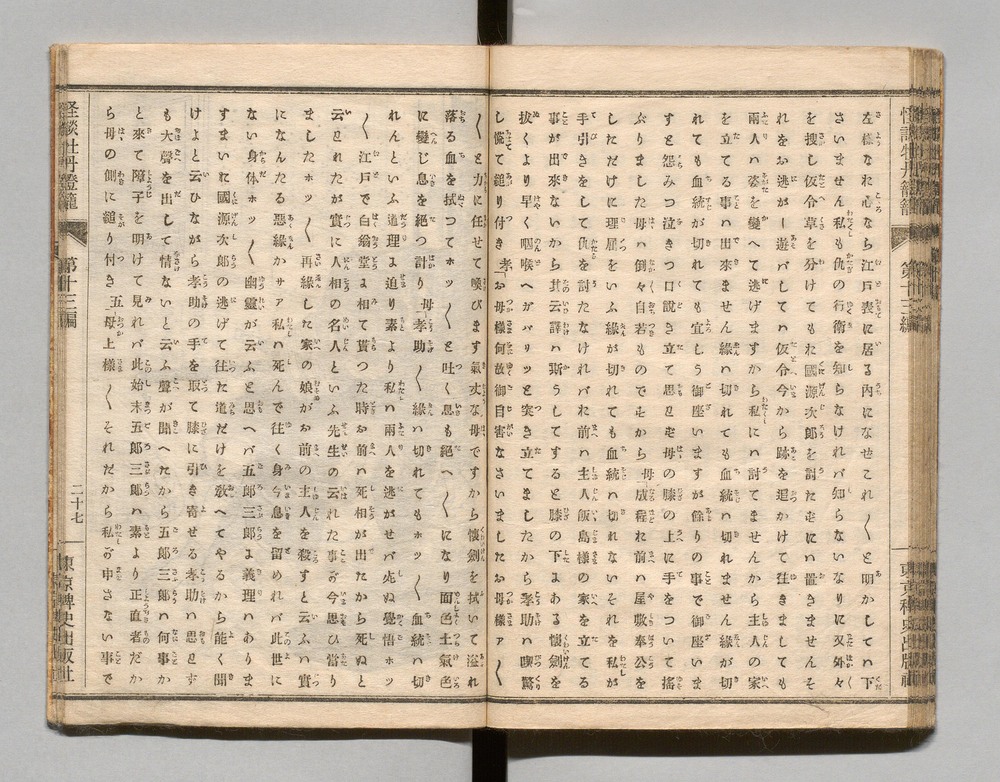 左様なれ心なら江戸表に居る内になぜこれ〱と明かしてハ下
さいません私も仇の行衛を知らなけれバ知らないなりに又外々
を捜し仮令草を分けてもお國源次郎を討たずにハ置きませんそ
れをお逃がし遊バしてハ仮令今から跡を追かけて往きましても
兩人ハ姿を變へて逃げますから私しにハ討てませんから主人の家
を立てる事ハ出來ません縁ハ切れても血統ハ切れません縁が切
れても血統が切れても宜しう御座いますが餘りの事で御座いま
すと怨みつ泣きつ口説き立て思はず母の膝の上に手をついて揺
ぶりました母ハ倒々自若ものでござゐから 母 成程お前ハ屋敷奉公を
しただけに理屈をいふ縁が切れても血統ハ切れないそれを私しが
手引きをして仇を討たなけれバお前ハ主人飯島様の家を立てる
事が出來ないから其云譯ハ斯うしてすると膝の下よある懐剣を
抜くより早く咽喉へガバッと突き立てましたから孝助ハ喫驚
し慌て縋り付き 孝「お母様何故御自害なさいましたお母様ア〱
〱と力に任せて喚びます氣丈な母ですから懐劍を拭いて溢れ
落る血を拭つてホッ〱と吐く息も絶へ〱になり面色土氣色
に變じ息を絶つ計り 母 孝助〱縁ハ切れてもホッ〱血統ハ切
れんといふ道理よ迫り素より私しハ兩人を逃がせバ死ぬ覺悟ホッ
〱江戸で白翁堂よ相て貰つた時お前ハ死相が出たから死ぬと
云はれたが實に人相の名人といふ先生の云れた事が今思ひ當り
ましたホッ〱再縁した家の娘がお前の主人を殺すと云ふハ實
になんたる惡縁かサア私しハ死んで往く身今息を留めれバ此世に
ない身体ホッ〱幽靈が云ふと思へバ五郎三郎よ義理ハありま
すまいお國源次郎の逃げて往た道だけを教へてやるから能く聞
けよと云ひながら孝助の手を取て膝に引き寄せる孝助ハ思はず
も大聲を出して情ないと云ふ聲が聞へたから五郎三郎ハ何事か
と來て障子を明けて見れバ此始末五郎三郎ハ素より正直者だか
ら母の側に縋り付き 五「母上樣〱それだから私しが申さない事で
怪談牡丹燈籠
第十三編
二十七
東京稗史出版社